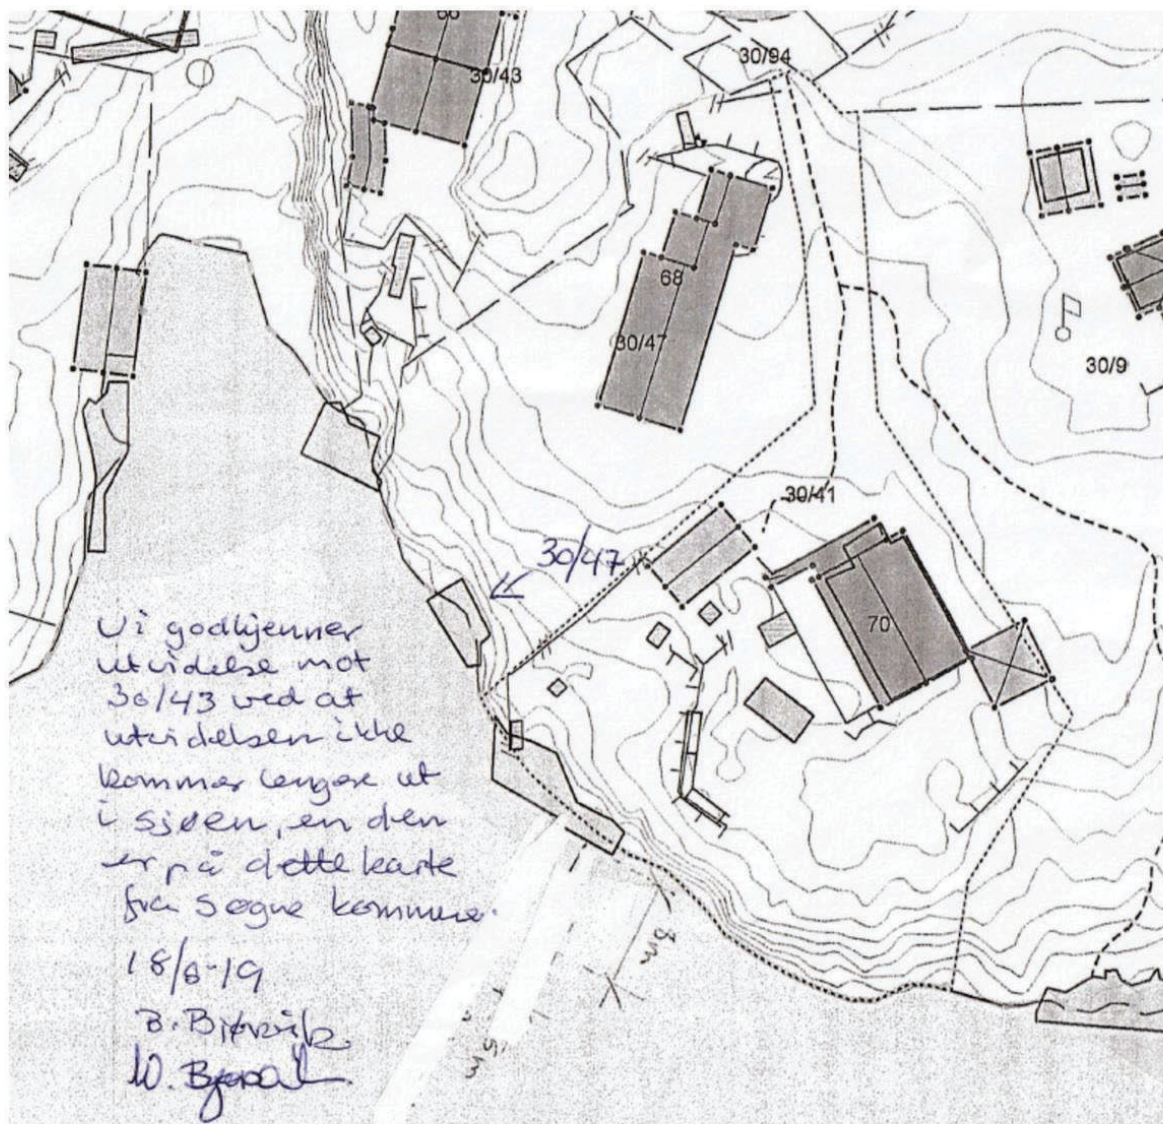 66
30/43
30/94
68
30/47
30/9
30/41
30/47
70
Vi godkjenner
utvidelse mot
30/43 ved at
utvidelsen ikke
kommer lengere ut
i sjøen, en den
er på dette karte
fra Søgne kommune.
18/8-19
B. Bjørvik
W.
3m
5m